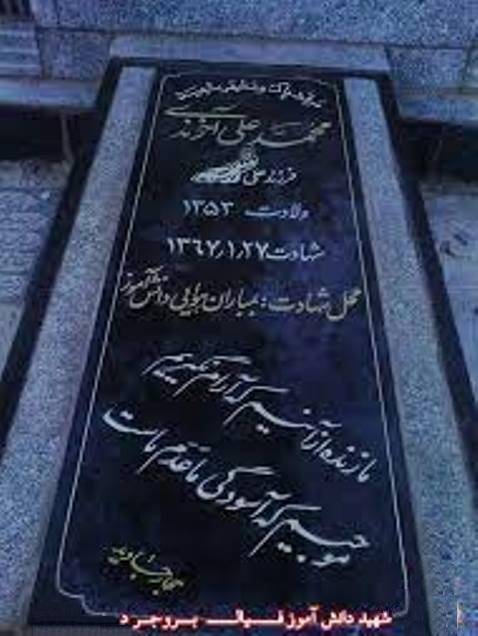 محمد علی آخوندی
فرزند علی
ولادت ۱۳۵۳
شهادت ۱۳۶۷/۱/۲۷
محل شهادت: بمباران هوایی دانش آموز
ما زنده از آنیم که آرام نگیریم
موجیم که آسودگی ما عدم ماست
شهید دانش آموز فـیـالـــ بـروجـرد